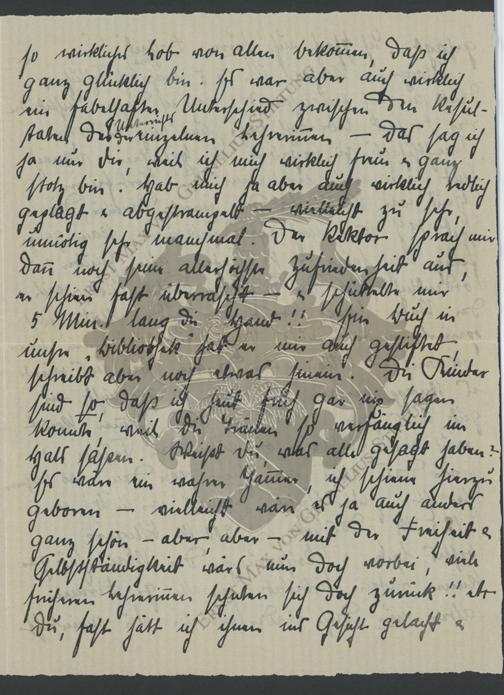 so wirkliches Lob von allen bekommen, daß ich
ganz glücklich bin. Es war aber auch wirklich
ein fabelhafter Unterschied zwischen den Resul-
taten des Unterrichts der einzelnen Lehrerinnen – das sag ich
ja nur dir, weil ich mich wirklich freu u ganz
stolz bin. Hab mich ja aber auch wirklich redlich
geplagt u abgestrampelt – vielleicht zu sehr,
unnötig sehr manchmal. Der Rektor sprach mir
dann noch seine allerhöchste Zufriedenheit aus,
er schien fast überrascht – u schüttelte mir
5 Min. lang die Hand!! Ein Buch in
unsre „Bibliothek" hat er mir auch gestiftet,
schreibt aber noch etwas hinein. Die Kinder
sind so, daß ich heut früh gar nix sagen
konnte, weil die Tränen so verfänglich im
Hals saßen. Weißt du, was alle gesagt haben?
Es wäre ein wahrer Jammer, ich schiene hierzu
geboren – vielleicht wäre es ja auch anders
ganz schön – aber, aber – mit der Freiheit u
Selbstständigkeit wärs nun doch vorbei, viele
früheren Lehrerinnen sehnten sich doch zurück!! etc
Du, fast hätt ich ihnen ins Gesicht gelacht u
MAX VON